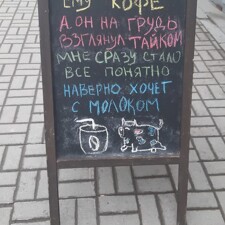 ЕМУ КОФЕ
А ОН НА ГРУДЬ
ВЗГЛЯНУЛ ТАЙКОМ
МНЕ СРАЗУ СТАЛО
ВСЕ ПОНЯТНО
НАВЕРНО ХОЧЕТ
С МОЛОКОМ